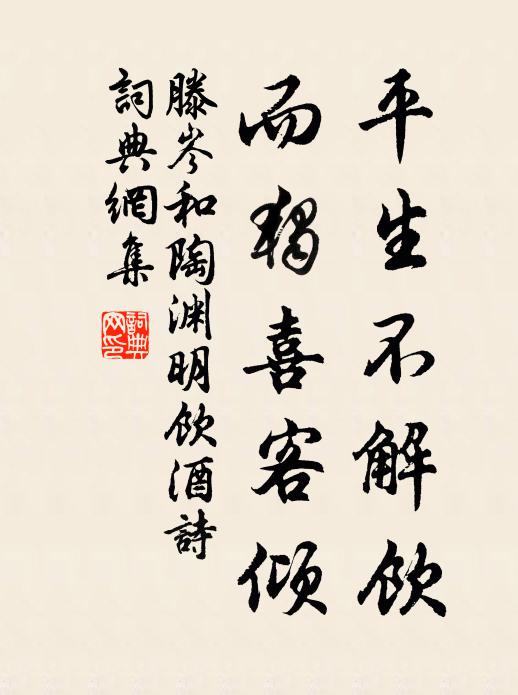 平生不解飲
而獨喜客傾
滕岑和陶淵明飲酒詩
詞典網集
詞典網印